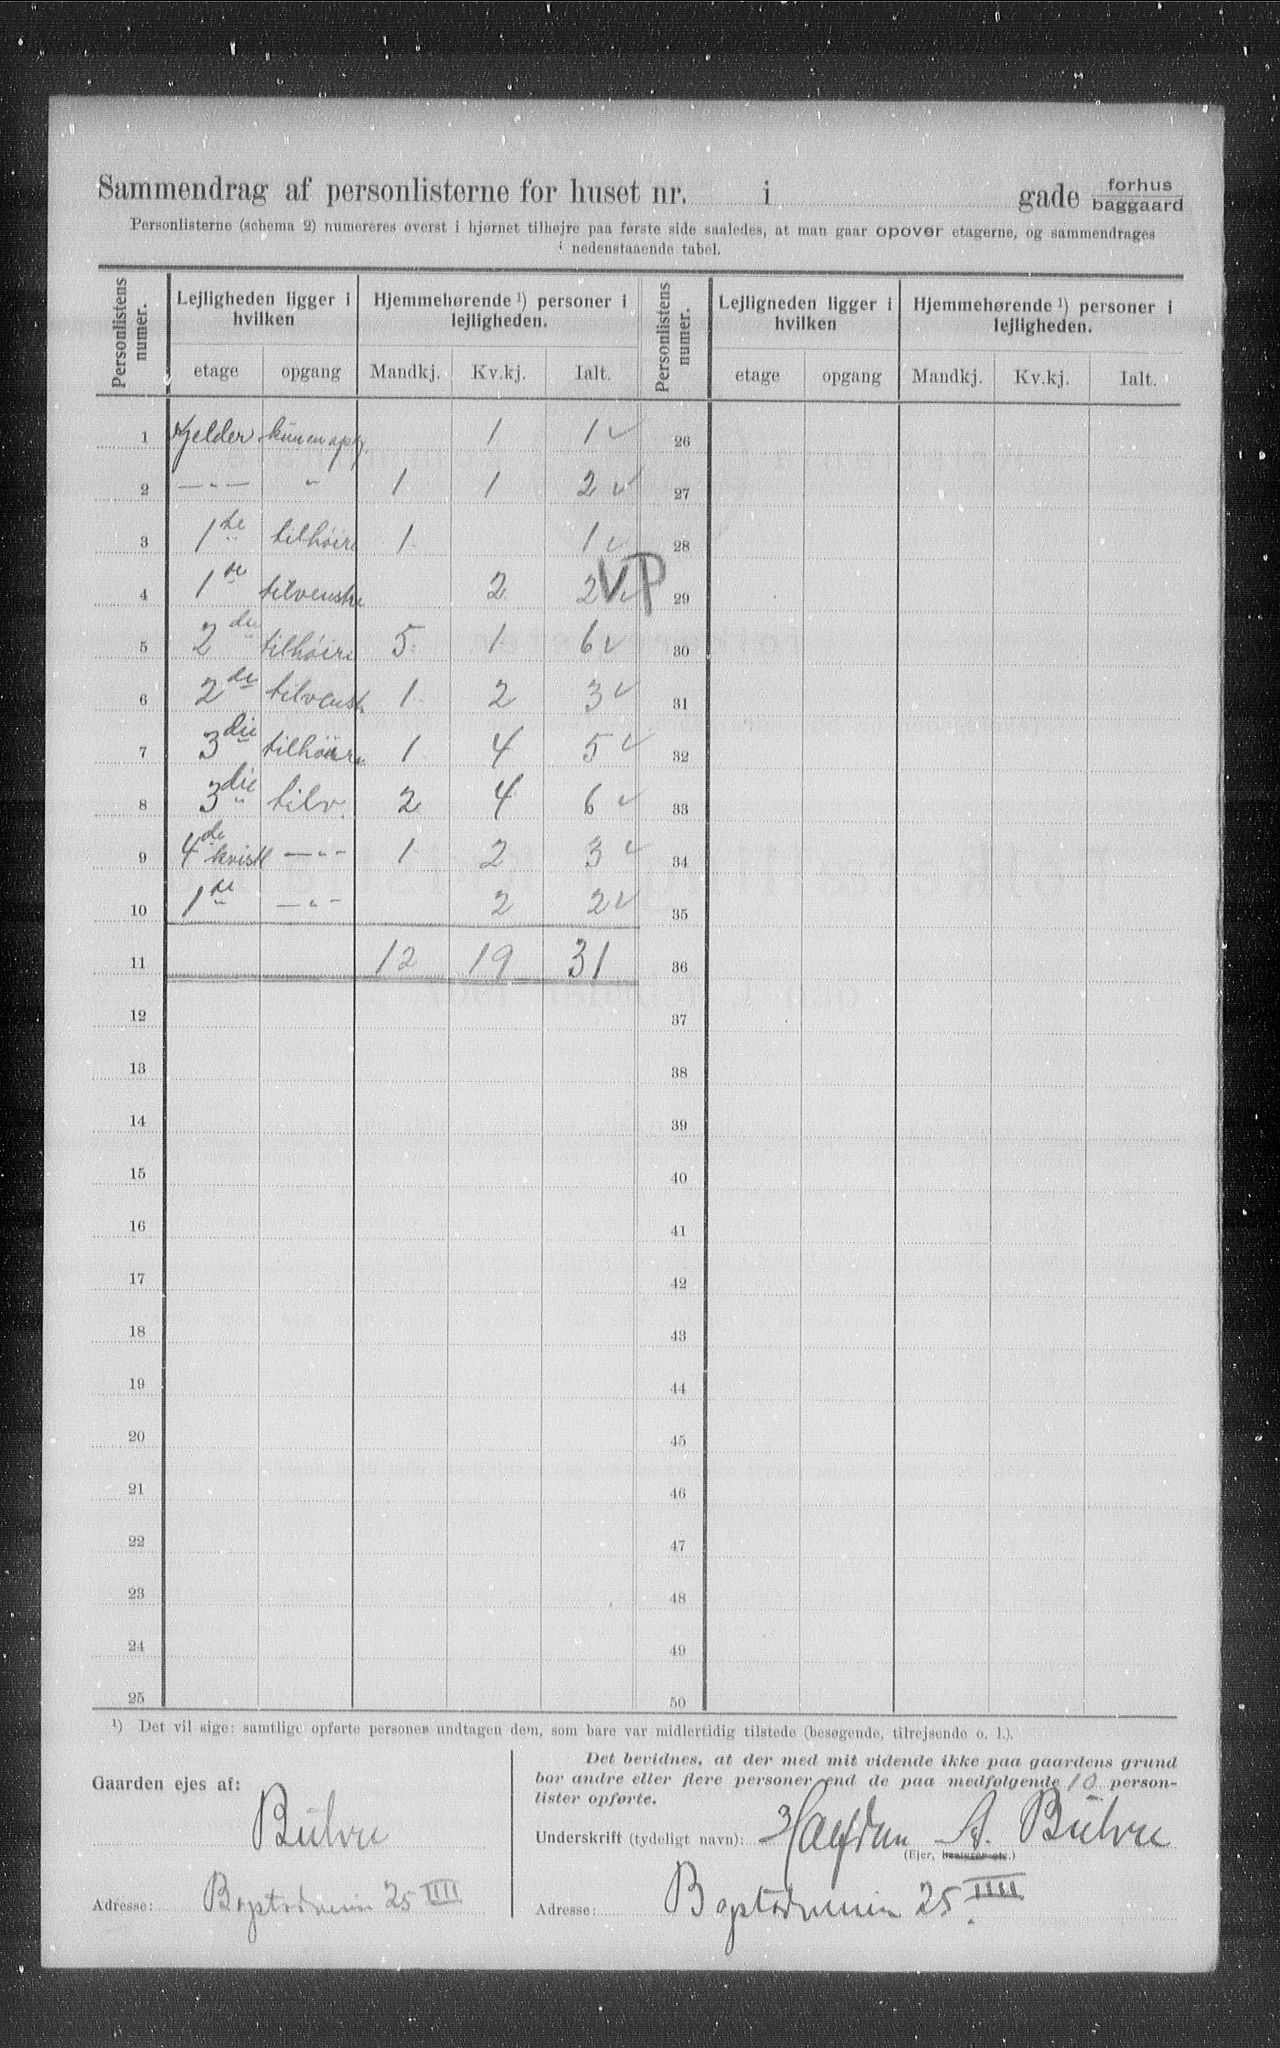 Sammendrag af personlisterne for huset nr. i gade forhus baggaard
Personlisterne (schema 2) numereres øverst i hjørnet tilhøjre paa første side saaledes, at man gaar opover etagerne, og sammendrages
i nedenstaaende tabel.
Personlistens numer. Lejligheden ligger i hvilken Hjemmehørende ¹) personer i lejligheden. Personlistens numer. Lejligneden ligger i hvilken Hjemmehørende ¹) personer i lejligheden.
etage opgang Mandkj. Kv.kj. Ialt. etage opgang Mandkj. Kv.kj. Ialt.
1 Kjelder kun en opg. 1 1 ✓ 26
2 — „ — „ 1 1 2 ✓ 27
3 1de tilhöire 1 1 ✓ 28
4 1de tilvenstre 2 2 ✓ VP 29
5 2den tilhöire 5 1 6 ✓ 30
6 2de tilvenst 1 2 3 ✓ 31
7 3die tilhöire 1 4 5 ✓ 32
8 3die tilv. 2 4 6 ✓ 33
9 4de kvist — „ — 1 2 3 ✓ 34
10 1de — „ — 2 2 ✓ 35
11 12 19 31 36
12 37
13 38
14 39
15 40
16 41
17 42
18 43
19 44
20 45
21 46
22 47
23 48
24 49
25 50
¹) Det vil sige: samtlige opførte personer undtagen dem, som bare var midlertidig tilstede (besøgende, tilrejsende o. l.).
Gaarden ejes af:
Bülow
Adresse: 25 IIII
Det bevidnes, at der med mit vidende ikke paa gaardens grund
bor andre eller flere personer end de paa medfølgende 10 person-
lister opførte.
Underskrift (tydeligt navn): Halfdan A. Bülow
(Ejer, bestyrer etc.)
Adresse: 25 IIII